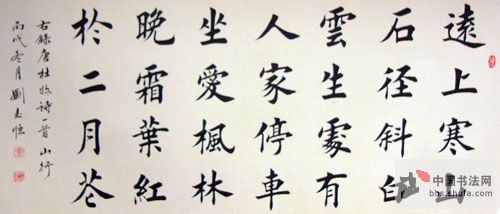 遠上寒山
石徑斜白
雲生處有
人家停車
坐愛楓林
晚霜葉紅
於二月花
右錄唐杜牧诗一首 山行
丙戌冬月 劉志
中国书法网
bbs.shufa.com